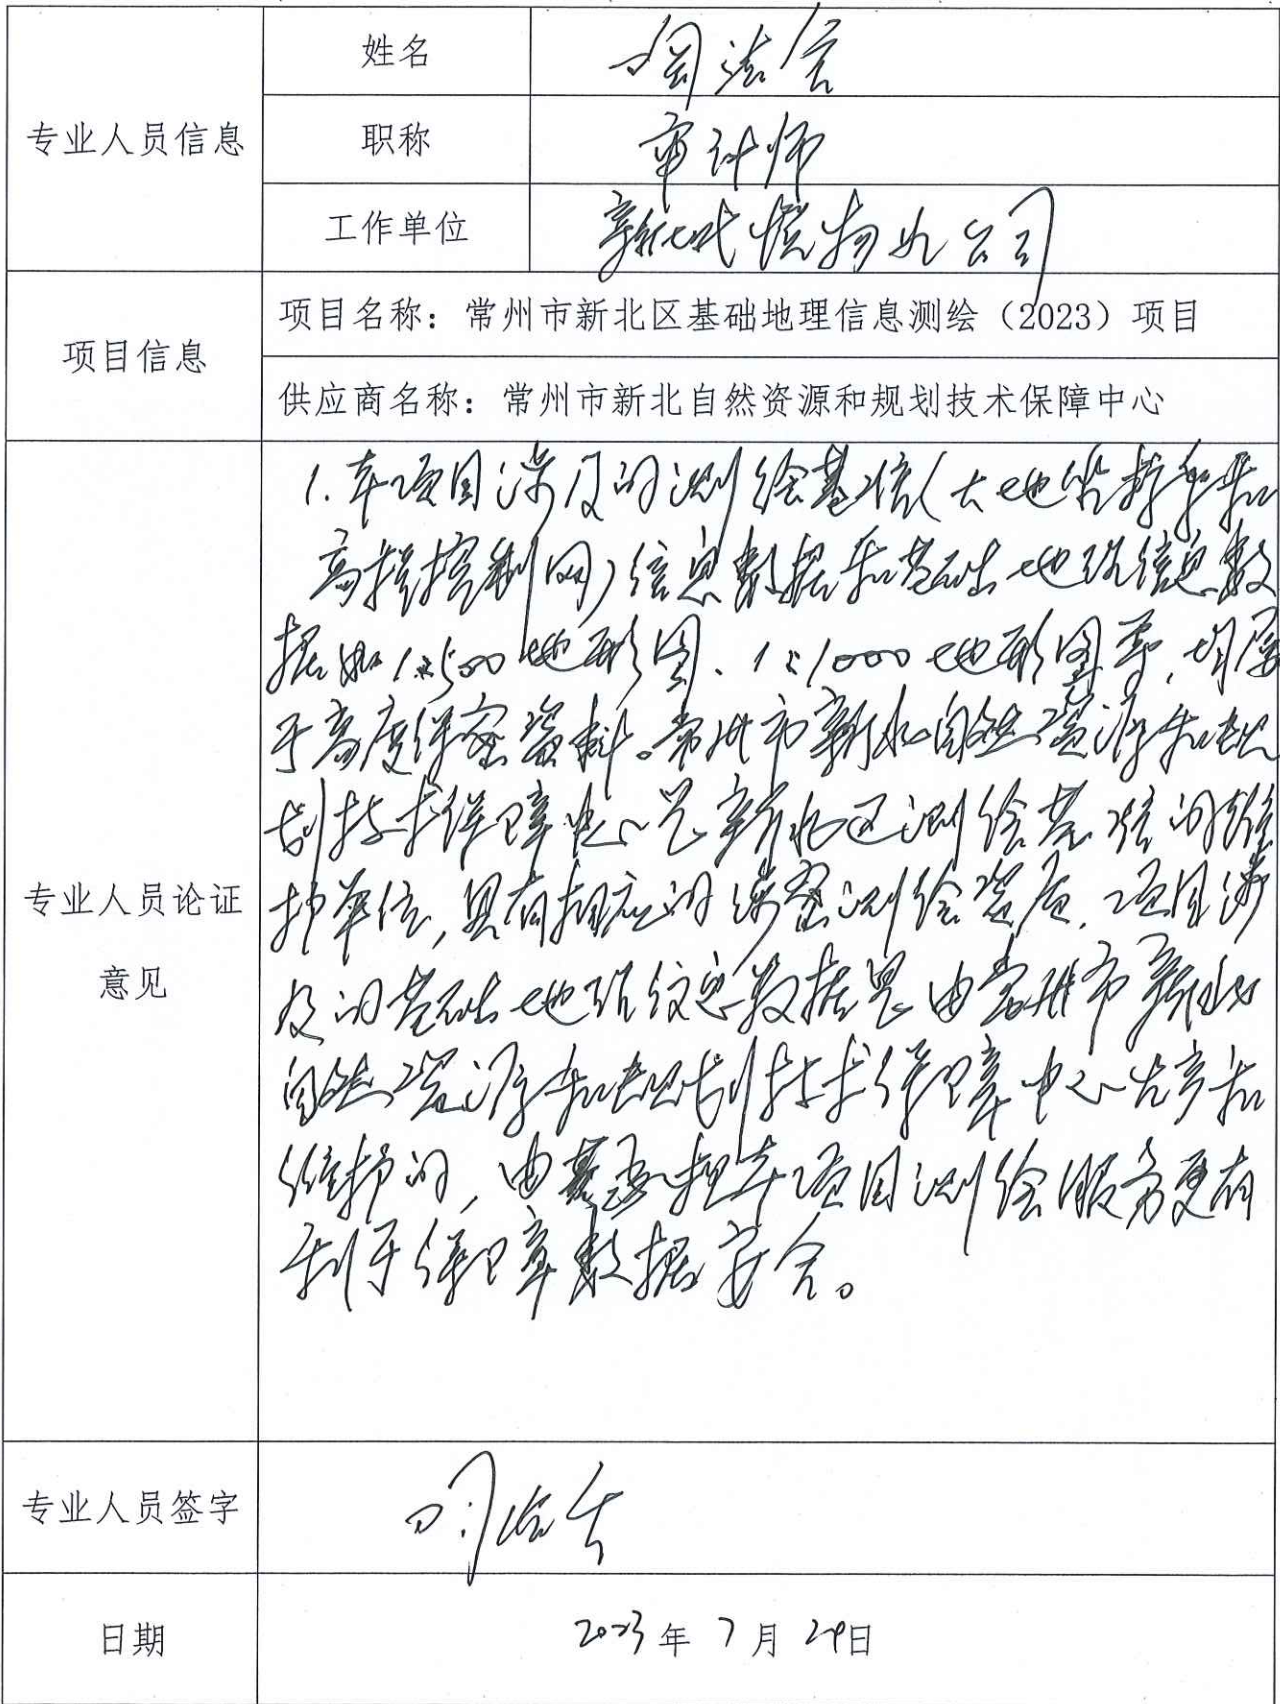 姓名
专业人员信息
职称
审计师
工作单位
物业公司
项目信息
项目名称：常州市新北区基础地理信息测绘（2023）项目
供应商名称：常州市新北自然资源和规划技术保障中心
1.本项目涉及的测绘基准(大地坐标和
高程控制网)信息数据和基础地理信息数
据如1:500地形图、1:1000地形图等,均属
于高度保密资料。常州市新北自然资源和规
划技术保障中心是新北区测绘基准的维
护单位,具有相应的涉密测绘资质,项目涉
及的基础地理信息数据是由常州市新北
自然资源和规划技术保障中心生产和
维护的,由其承担本项目测绘服务更有
利于保障数据安全。
专业人员论证
意见
专业人员签字
日期
2023年7月 日